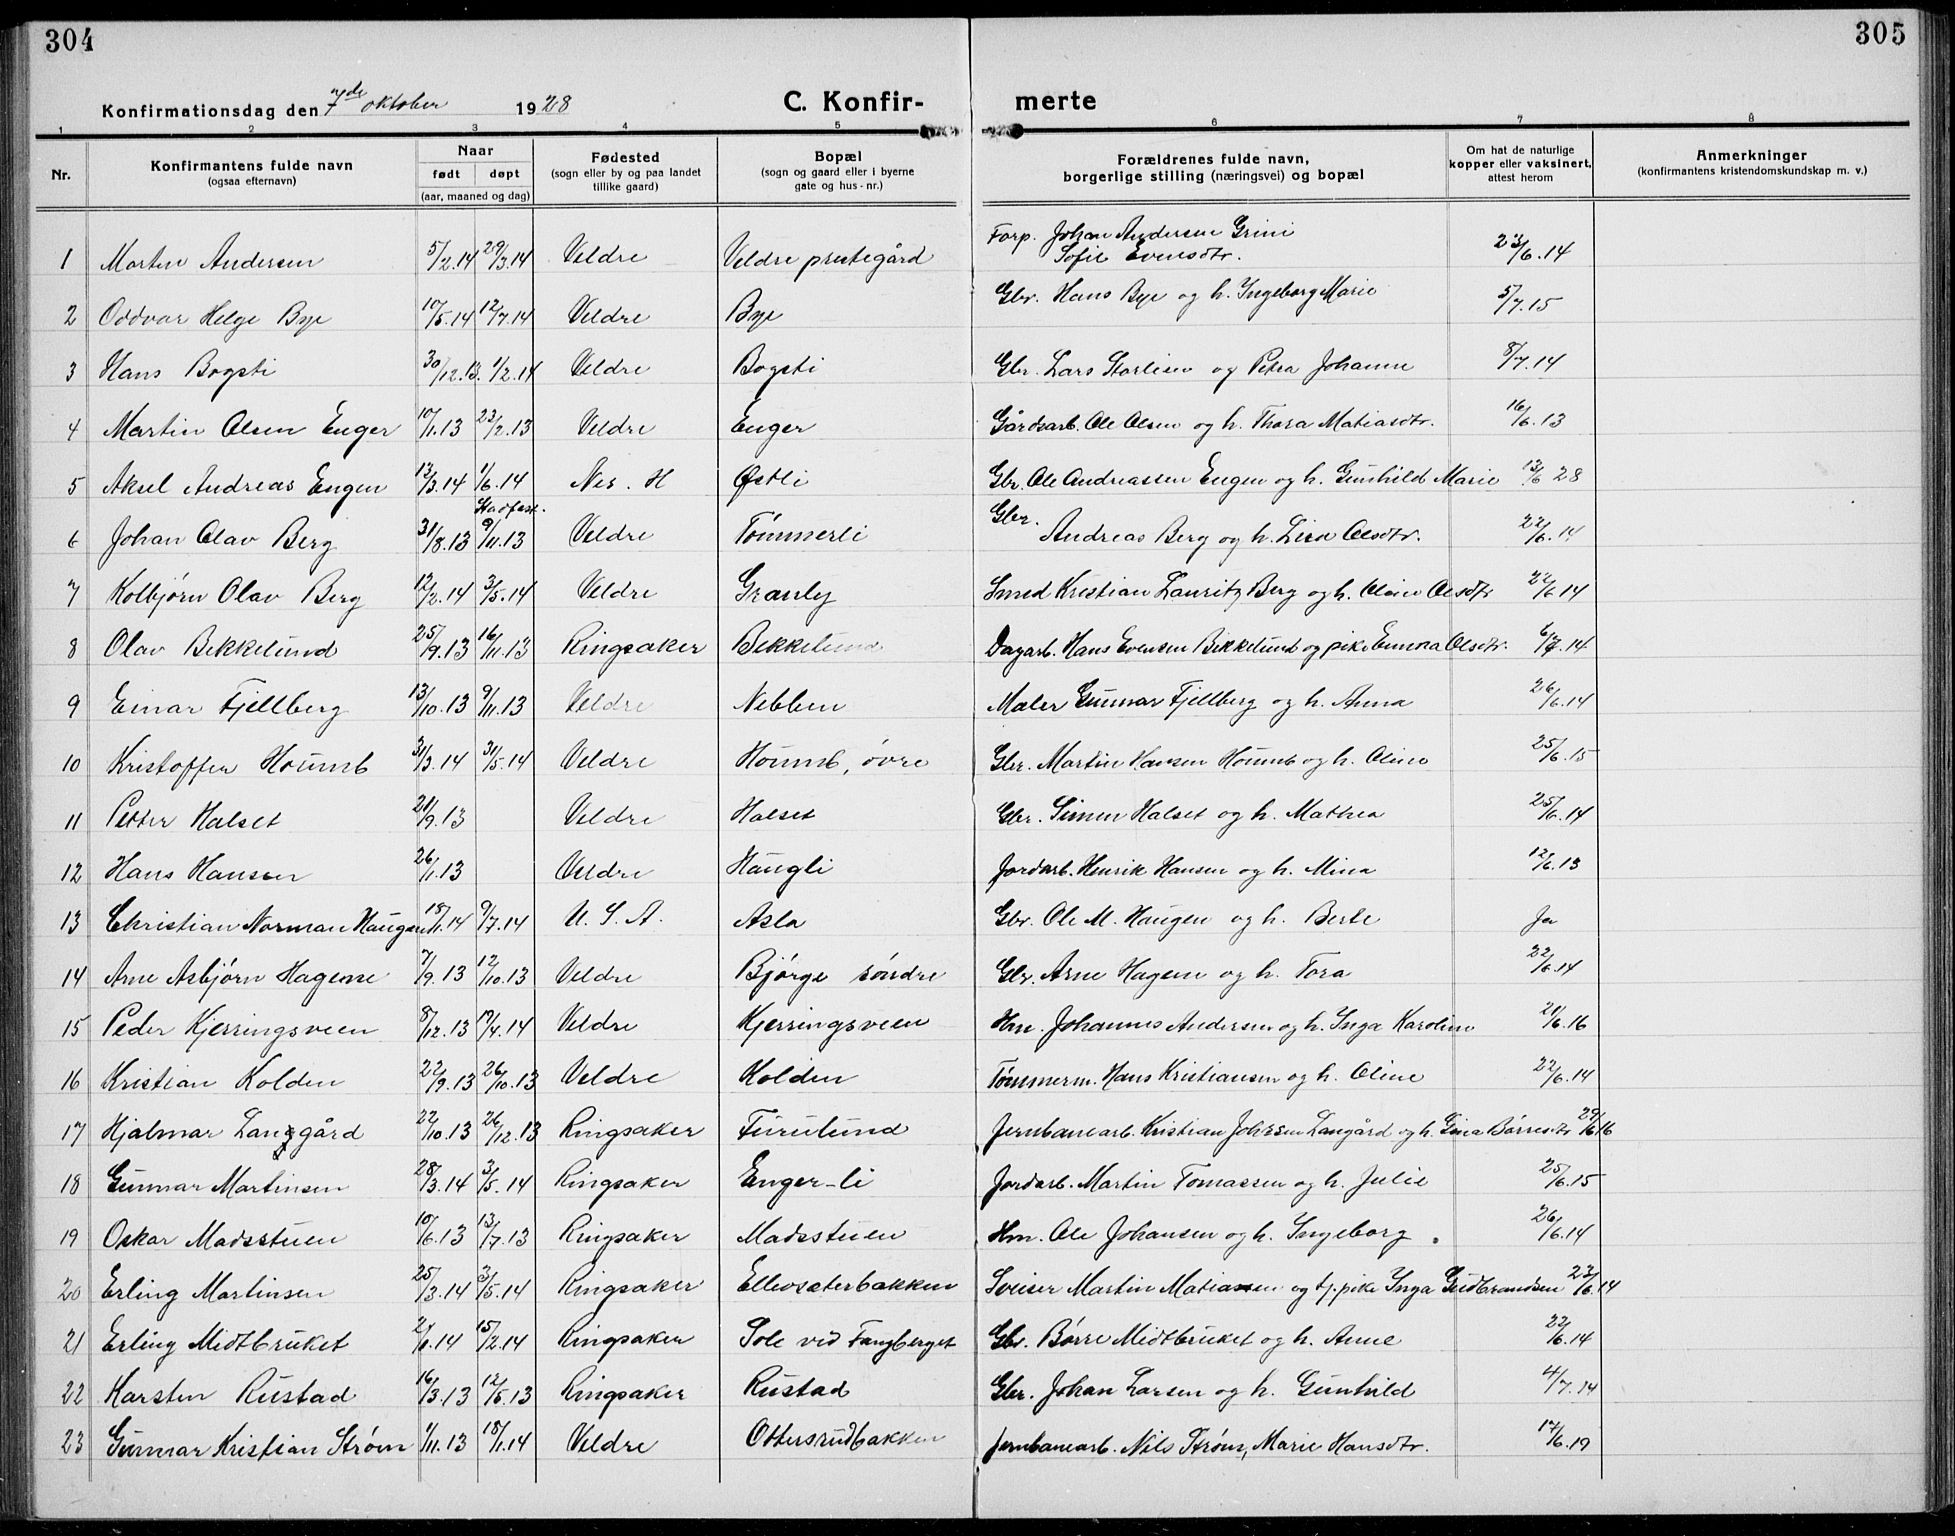 304
305
Konfirmationsdag den 7nde oktober 1928
C. Konfirmerte
1 2 3 4 5 6 7 8
Nr. | Konfirmantens fulde navn (ogsaa efternavn) | Naar født døpt (aar, maaned og dag) | Fødested (sogn eller by og paa landet tillike gaard) | Bopæl (sogn og gaard eller i byerne gate og hus-nr.) | Forældrenes fulde navn, borgerlige stilling (næringsvei) og bopæl | Om hat de naturlige kopper eller vaksinert, attest herom | Anmerkninger (konfirmantens kristendomskundskap m. v.)
1 Morten Andersen 5/2.14 29/3.14 Veldre Veldre prestegård Forp. Johan Andersen Grini Sofie Evensdtr. 23/6.14
2 Oddvar Helge Bye 10/5.14 12/7.14 Veldre Bye Gbr. Hans Bye og h. Ingeborg Marie 5/7.15
3 Hans Bogsti 30/12.13. 1/2.14 Veldre Bogsti Gbr. Lars Storlisen og Petra Johanne 8/7.14
4 Martin Olsen Enger 10/1.13 23/2.13 Veldre Enger Gårdsarb. Ole Olsen og h. Thora Matiasdtr. 16/6.13
5 Aksel Andreas Engen 13/3.14 1/6.14 Nes. H Østli Gbr. Ole Andreassen Engen og h. Gunhild Marie 13/6 28
6 Johan Olav Berg 31/8.13 Stadfest. 9/11.13 Veldre Tømmerli Gbr. Andreas Berg og h. Lina Olsdtr. 22/6.14
7 Kolbjørn Olav Berg 12/2.14 3/5.14 Veldre Granly Smed Kristian Lauritz Berg og h. Oline Olsdtr 22/6 14
8 Olav Bekkelund 25/9.13 16/11.13 Ringsaker Bekkelund Dagarb. Hans Evensen Bekkelund og pike Emma Olsdtr. 6/7.14
9 Einar Fjellberg 13/10.13 9/11.13 Veldre Nebben Maler Gunnar Fjellberg og h. Anna 26/6.14
10 Kristoffer Houmb 31/3.14 31/5.14 Veldre Houmb, øvre Gbr. Martin Hansen Houmb og h. Oline 25/6.15
11 Petter Halset 21/9.13 Veldre Halset Gbr. Simen Halset og h. Mathea 25/6.14
12 Hans Hansen 26/1.13 Veldre Haugli Jordarb. Henrik Hansen og h. Mina 12/6.13
13 Christian Norman Haugen 18/1.14 9/7.14 U. S. A. Asla Gbr. Ole M. Haugen og h. Berte Ja
14 Arne Asbjørn Hagene 7/9.13 12/10.13 Veldre Bjørge søndre Gbr. Arne Hagen og h. Tora 22/6.14
15 Peder Kjerringsveen 8/12.13 19/4.14 Veldre Kjerringsveen Hm. Johannes Andersen og h. Inga Karoline 21/6.16
16 Kristian Kolden 22/9.13 26/10.13 Veldre Kolden Tømmerm. Hans Kristiansen og h. Oline 22/6.14
17 Hjalmar Langgård 22/10.13 26/12.13 Ringsaker Furulund Jernbanearb. Kristian Johnsen Langård og h. Gina Børresdtr 29/6 16
18 Gunnar Martinsen 28/3.14 3/5.14 Ringsaker Enger-li Jordarb. Martin Tomassen og h. Julie 25/6.15
19 Oskar Madsstuen 10/6.13 13/7.13 Ringsaker Madsstuen Hm. Ole Johansen og h. Ingeborg. 26/6.14
20 Erling Martinsen 25/3.14 3/5.14 Ringsaker Ellevsæterbakken Sveiser Martin Matiassen og tj. pike Inga Gudbrandsen 23/6.14
21 Erling Midtbruket 2/1.14 15/2.14 Ringsaker Sole ved Fangberget Gbr. Børre Midtbruket og h. Anne 22/6.14
22 Karsten Rustad 16/3.13 12/5.13 Ringsaker Rustad Gbr. Johan Larsen og h. Gunhild 4/7.14
23 Gunnar Kristian Strøm 1/11.13 18/1.14 Veldre Ottersrudbakken Jernbanearb. Nils Strøm, Marie Hansdtr. 17/6.19